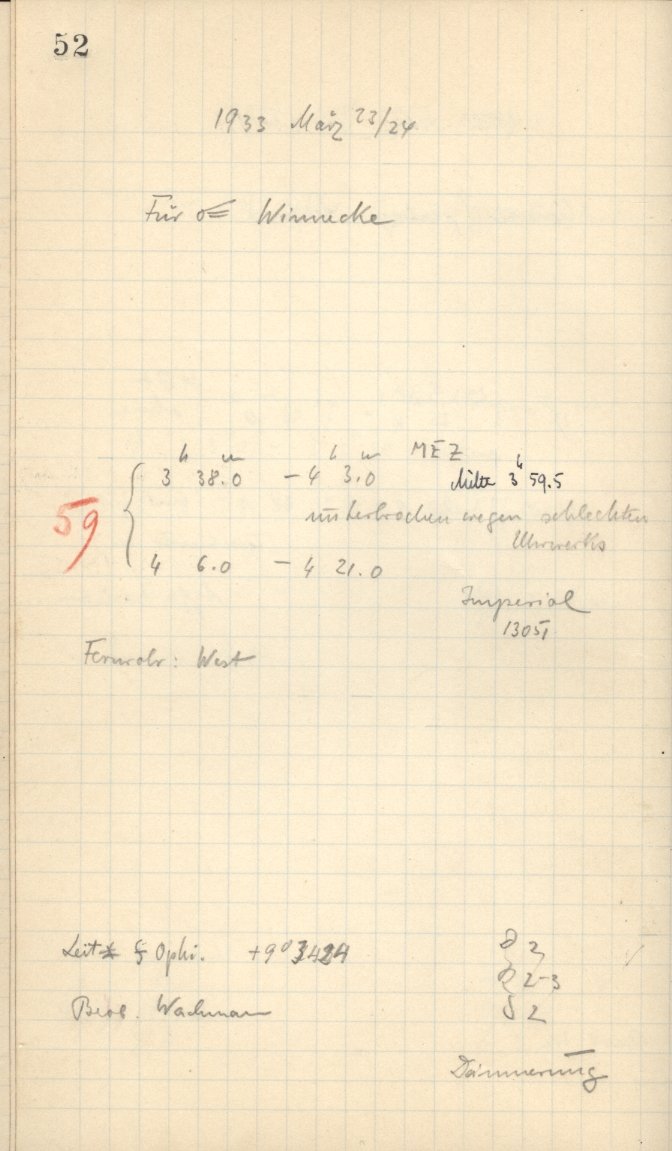 52
1933 März 23/24
Für ☄ Winnecke
h m h m MEZ
3 38.0 – 4 3.0 Mitte 3h 59.5
59
unterbrochen wegen schlechten
Uhrwerks
4 6.0 – 4 21.0
Imperial
13051
Fernrohr: West
Leit* Ophi. +9° 3424
2
2-3
Beob. Wachmann
2
Dämmerung